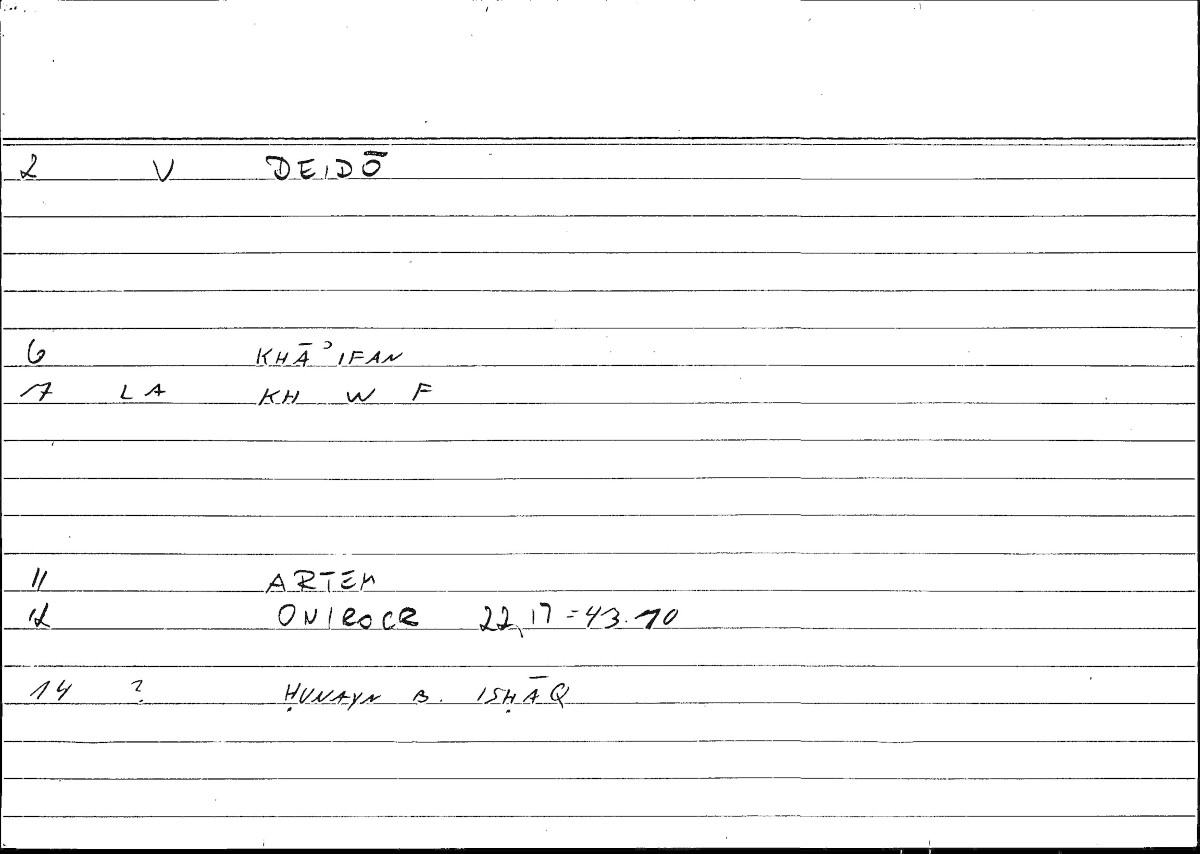 2 V DEIDŌ
6 KHĀʾIFAN
7 LA KH W F
11 ARTEM
12 ONIROCR 22,17=43.10
14 ? ḤUNAYN B. ISḤĀQ